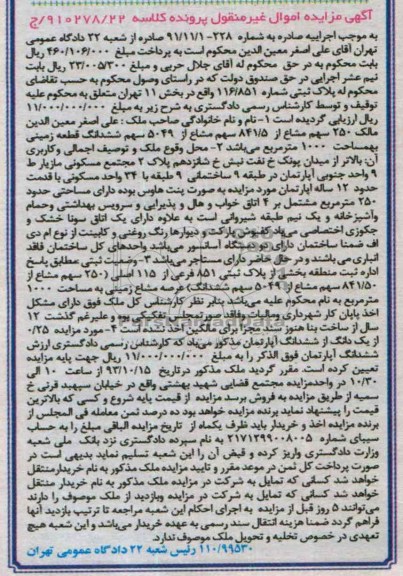 آگهی مزایده اموال غیرمنقول پرونده کلاسه ۹۱۰۲۷۸/۲۲/ج
به موجب اجراییه صادره به شماره ۲۲۸- ۹۱/۱۱/۱ صادره از شعبه ۲۲ دادگاه عمومی
تهران آقای علی اصغر معین الدین محکوم است به پرداخت مبلغ ۴۶۰/۱۰۶/۰۰۰ ریال
بابت محکوم به در حق محکوم له آقای جلال حربی و مبلغ ۲۳/۰۰۵/۳۰۰ ریال بابت
نیم عشر اجرایی در حق صندوق دولت که در راستای وصول محکوم به حسب تقاضای
محکوم له پلاک ثبتی شماره ۱۱۶/۸۵۱ واقع در بخش ۱۱ تهران متعلق به محکوم علیه
توقیف و توسط کارشناس رسمی دادگستری به شرح زیر به مبلغ ۱۱/۰۰۰/۰۰۰/۰۰۰
ریال ارزیابی گردیده است ۱- نام و نام خانوادگی صاحب ملک : علی اصغر معین الدین
مالک ۲۵۰ سهم مشاع از ۸۴۱/۵ سهم مشاع از ۵۰۴۹ سهم ششدانگ قطعه زمینی
بهمساحت ۱۰۰۰ مترمربع می‌باشد ۲- محل وقوع ملک و توصیف اجمالی و کاربری
آن: بالاتر از میدان پونک خ نفت نبش خ شانزدهم پلاک ۲ مجتمع مسکونی مازیار ط
۹ واحد جنوبی آپارتمان در طبقه ۹ ساختمانی ۹ طبقه با ۳۴ واحد مسکونی با قدمت
حدود ۱۲ ساله آپارتمان مورد مزایده به صورت پنت هاوس بوده دارای مساحتی حدود
۲۵۰ مترمربع مشتمل بر ۴ اتاق خواب و هال و پذیرایی و سرویس بهداشتی وحمام
وآشپزخانه و یک نیم طبقه شیروانی است به علاوه دارای یک اتاق سونا خشک و
جکوزی اختصاصی می‌باشد کفپوش پارکت و دیوارها رنگ روغنی و کابینت از نوع ام دی
اف ضمنا ساختمان دارای دو دستگاه آسانسور می‌باشد واحدهای کل ساختمان فاقد
انباری می باشند و در حال حاضر دارای مستاجر می‌باشد ۳- وضعیت ثبتی مطابق پاسخ
اداره ثبت منطقه بخشی از پلاک ثبتی ۸۵۱ فرعی از ۱۱۵ اصلی (۲۵۰ سهم مشاع از
۸۴۱/۵۰ سهم مشاع از ۵۰۴۹ سهم ششدانگ) عرصه مشاع زمینی به مساحت ۱۰۰۰
مترمربع به نام محکوم علیه می‌باشد بنابر نظر کارشناس کل ملک فوق دارای مشکل
اخذ پایان کار شهرداری ومالیات وفاقد صورتمجلس تفکیکی بوده و علیرغم گذشت ۱۲
سال از ساخت بنا هنوز سند مجزا برای مالکین اخذ نشده است ۴- مورد مزایده ۰/۲۵
از یک دانگ از ششدانگ آپارتمان مذکور می‌باشد که کارشناس رسمی دادگستری ارزش
ششدانگ آپارتمان فوق الذکر را به مبلغ ۱۱/۰۰۰/۰۰۰/۰۰۰ ریال جهت پایه مزایده
تعیین کرده است. مقرر گردید ملک مذکور درتاریخ ۹۳/۱۰/۱۵ از ساعت ۱۰ الی
۱۰/۳۰ در واحدمزایده مجتمع قضایی شهید بهشتی واقع در خیابان سپهبد قرنی خ
سمیه از طریق مزایده به فروش برسد مزایده از قیمت پایه شروع و کسی که بالاترین
قیمت را پیشنهاد نماید برنده مزایده خواهد بود ده درصد ثمن معامله فی المجلس از
برنده مزایده اخذ و خریدار باید ظرف یکماه از تاریخ مزایده الباقی مبلغ را به حساب
سیبای شماره ۲۱۷۱۲۹۹۰۰۸۰۰۵ به نام سپرده دادگستری نزد بانک ملی شعبه
وزارت دادگستری واریز کرده و قبض آن را این شعبه تسلیم نماید بدیهی است در
صورت پرداخت کل ثمن در موعد مقرر و تایید مزایده ملک مذکور به نام خریدارمنتقل
خواهد شد کسانی که تمایل به شرکت در مزایده ملک مذکور به نام خریدار منتقل
خواهد شد کسانی که تمایل به شرکت در مزایده وبازدید از ملک موصوف را دارند
می‌توانند ۵ روز قبل از مزایده به اجرای احکام این شعبه مراجعه تا ترتیب بازدید آنها
فراهم گردد ضمنا هزینه انتقال سند رسمی به عهده خریدار می‌باشد و این شعبه هیچ
تعهدی در خصوص تخلیه و تحویل ملک موصوف ندارد.
۱۱۰/۹۹۵۳۰ رئیس شعبه ۲۲ دادگاه عمومی تهران